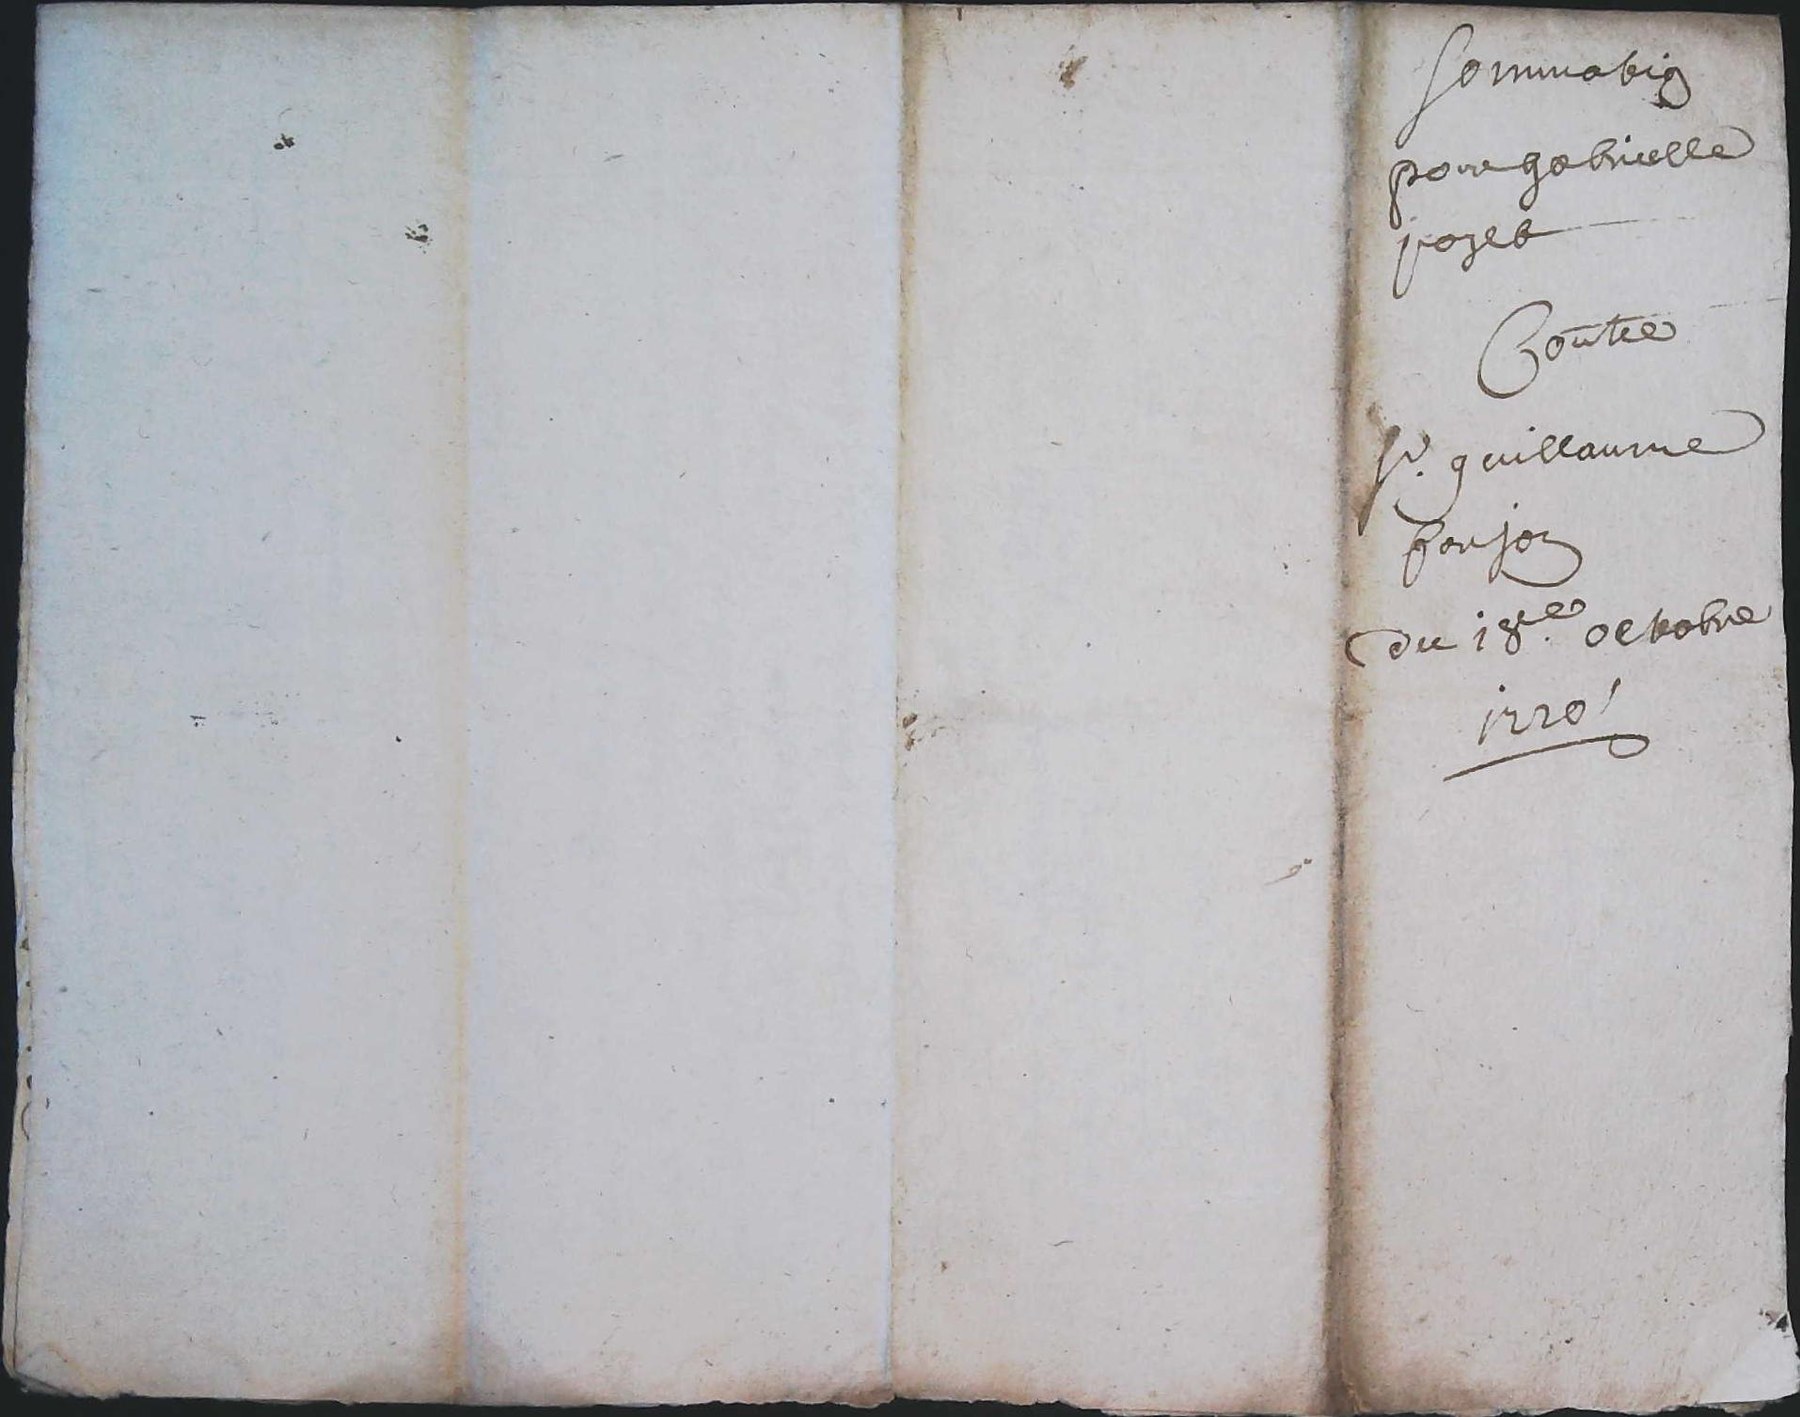 sommatio
pour gabrielle
jozet
Contre
Sr. guillaume
poujoz
du 18e. octobre
1720